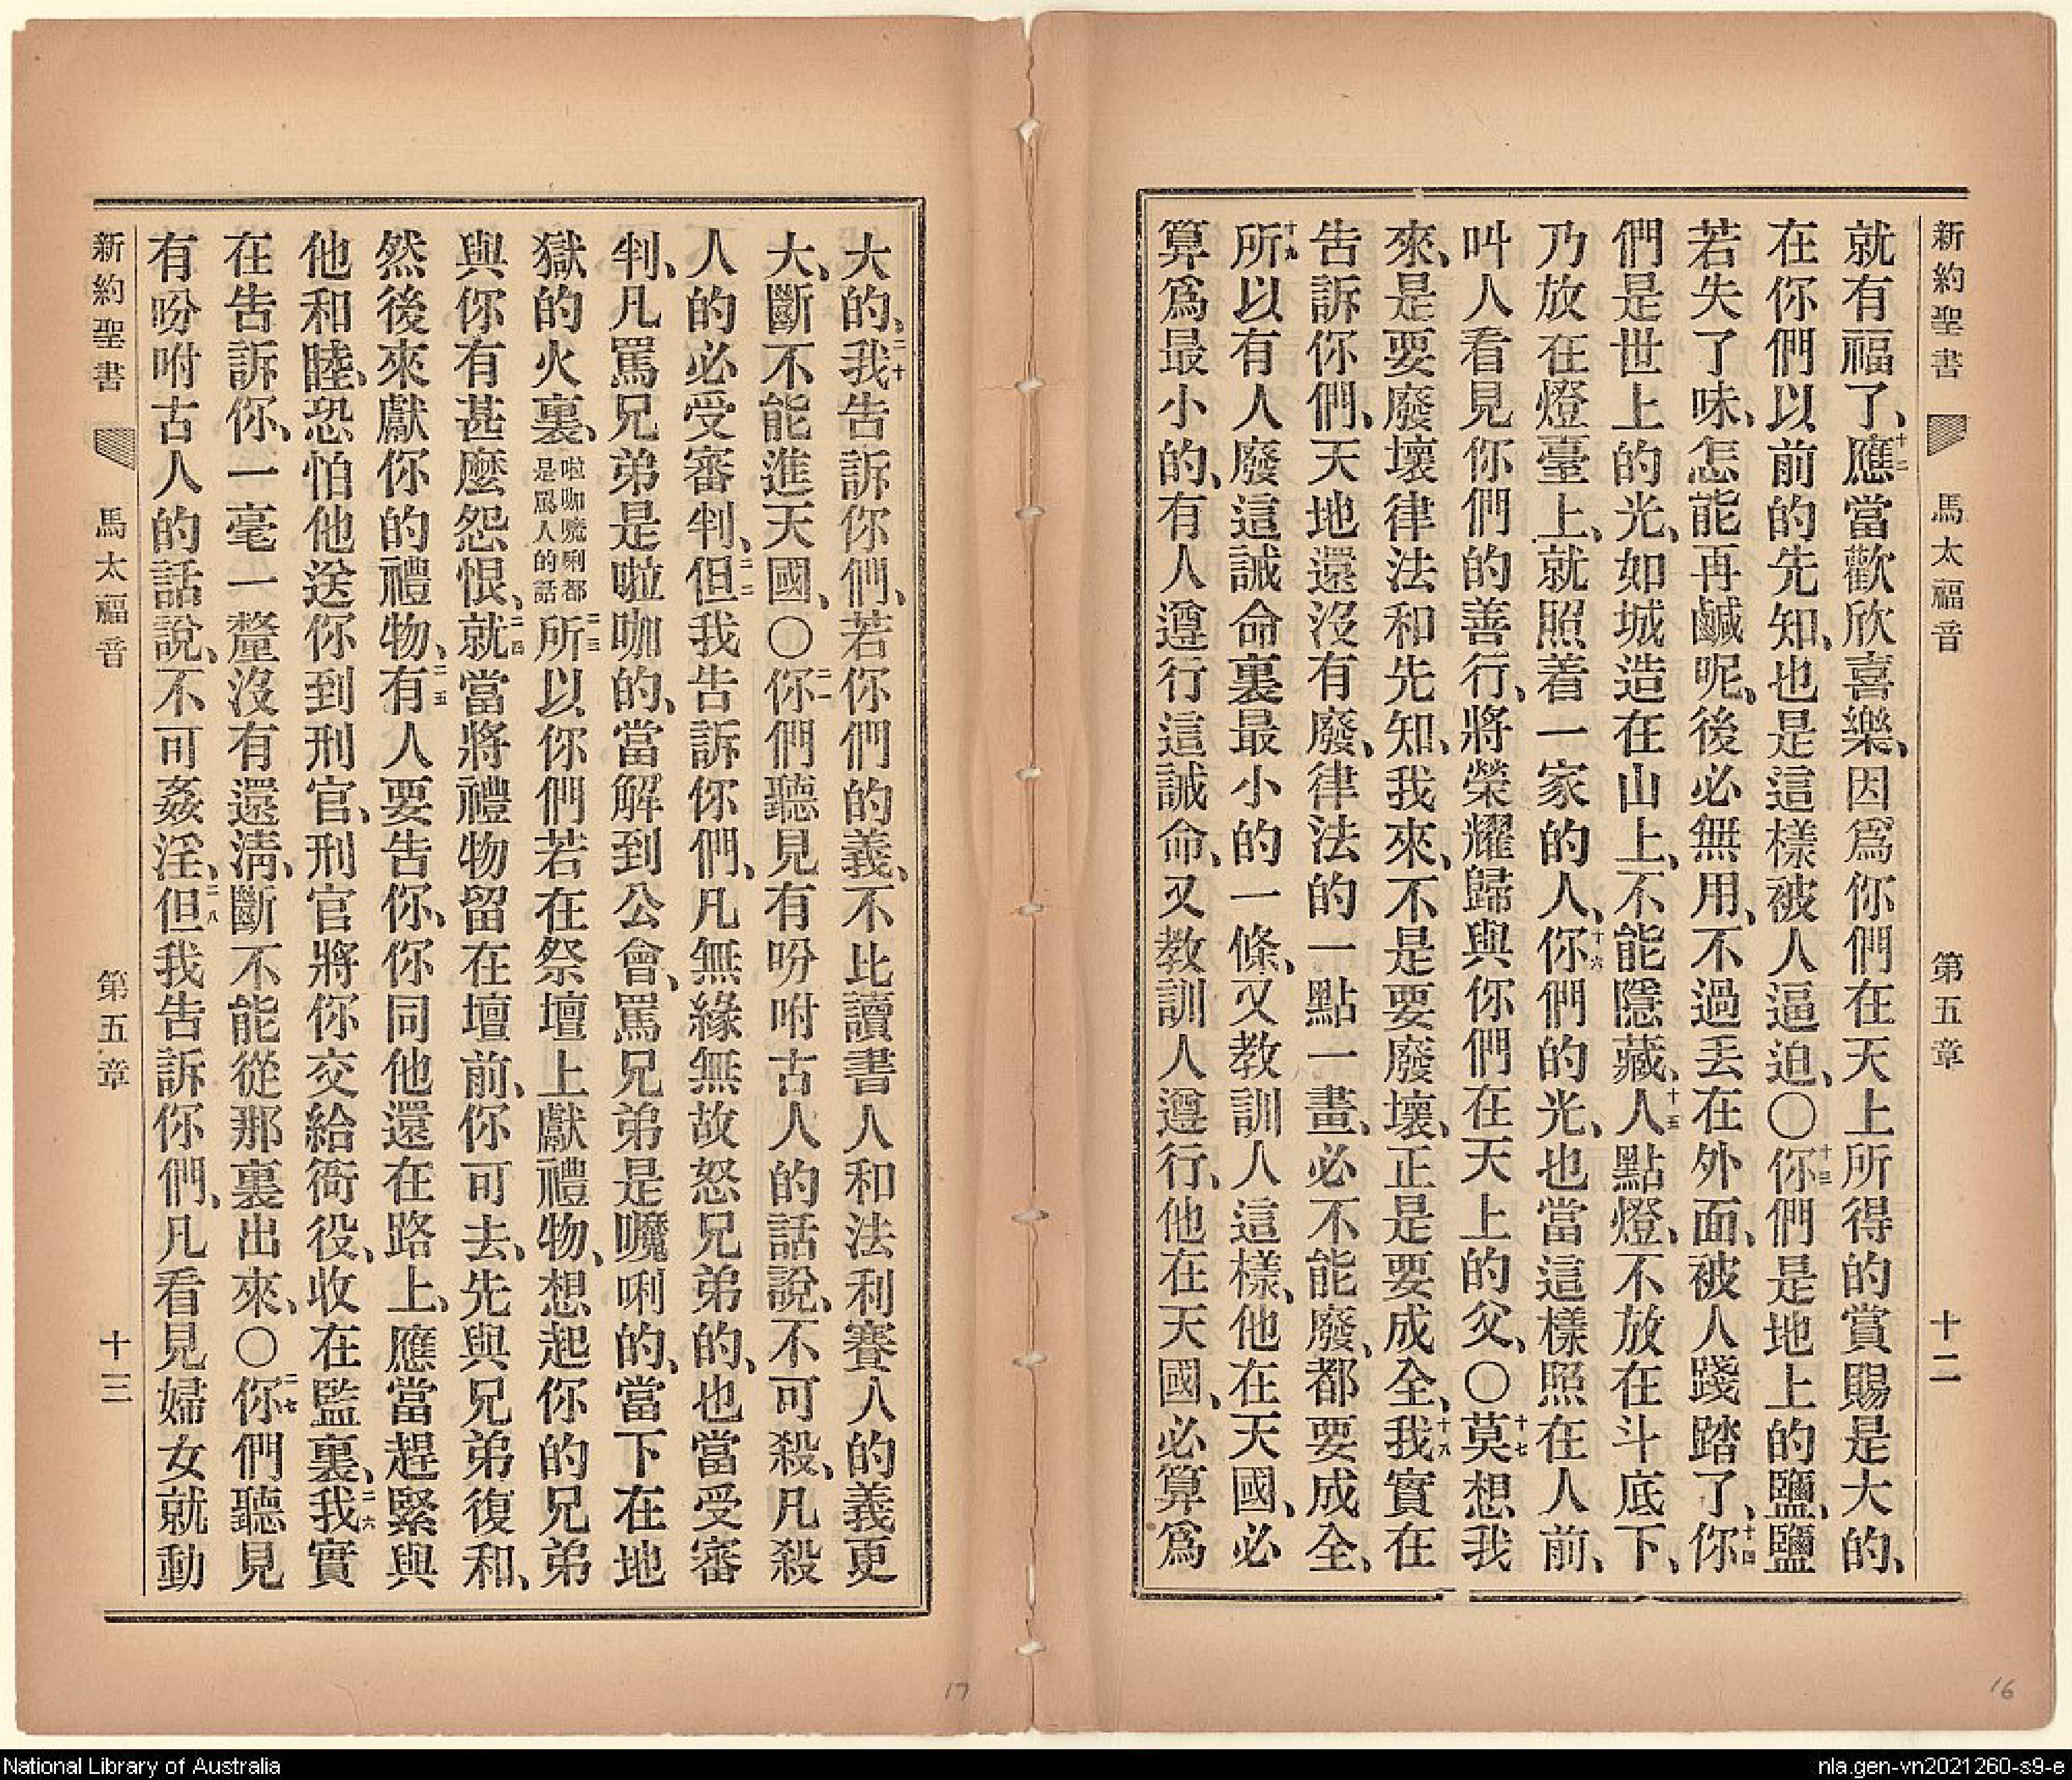 新約聖書 馬太福音 第五章 十二
就有福了、十二應當歡欣喜樂、因爲你們在天上所得的賞賜是大的、
在你們以前的先知、也是這樣被人逼迫、〇十三你們是地上的鹽、鹽
若失了味、怎能再鹹呢、後必無用、不過丢在外面、被人踐踏了、十四你
們是世上的光、如城造在山上、不能隱藏、十五人點燈、不放在斗底下、
乃放在燈臺上、就照着一家的人、十六你們的光、也當這樣照在人前、
叫人看見你們的善行、將榮耀歸與你們在天上的父、〇十七莫想我
來、是要廢壞律法和先知、我來、不是要廢壞、正是要成全、十八我實在
告訴你們、天地還沒有廢、律法的一點一畫、必不能廢、都要成全、
十九所以有人廢這誡命裏最小的一條、又教訓人這樣、他在天國、必
算爲最小的、有人遵行這誡命、又教訓人遵行、他在天國、必算爲
大的、二十我告訴你們、若你們的義、不比讀書人和法利賽人的義更
大、斷不能進天國、〇二一你們聽見有吩咐古人的話說、不可殺、凡殺
人的必受審判、二二但我告訴你們、凡無緣無故怒兄弟的、也當受審
判、凡罵兄弟是啦咖的、當解到公會、罵兄弟是嚒唎的、當下在地
獄的火裏、啦咖嚒唎都是罵人的話二三所以你們若在祭壇上獻禮物、想起你的兄弟
與你有甚麼怨恨、二四就當將禮物留在壇前、你可去、先與兄弟復和、
然後來獻你的禮物、二五有人要告你、你同他還在路上、應當趕緊與
他和睦、恐怕他送你到刑官、刑官將你交給衙役、收在監裏、二六我實
在告訴你、一毫一釐沒有還淸、斷不能從那裏出來、〇二七你們聽見
有吩咐古人的話說、不可姦淫、二八但我告訴你們、凡看見婦女就動
新約聖書 馬太福音 第五章 十三
17
16
National Library of Australia
nla.gen-vn2021260-s9-e